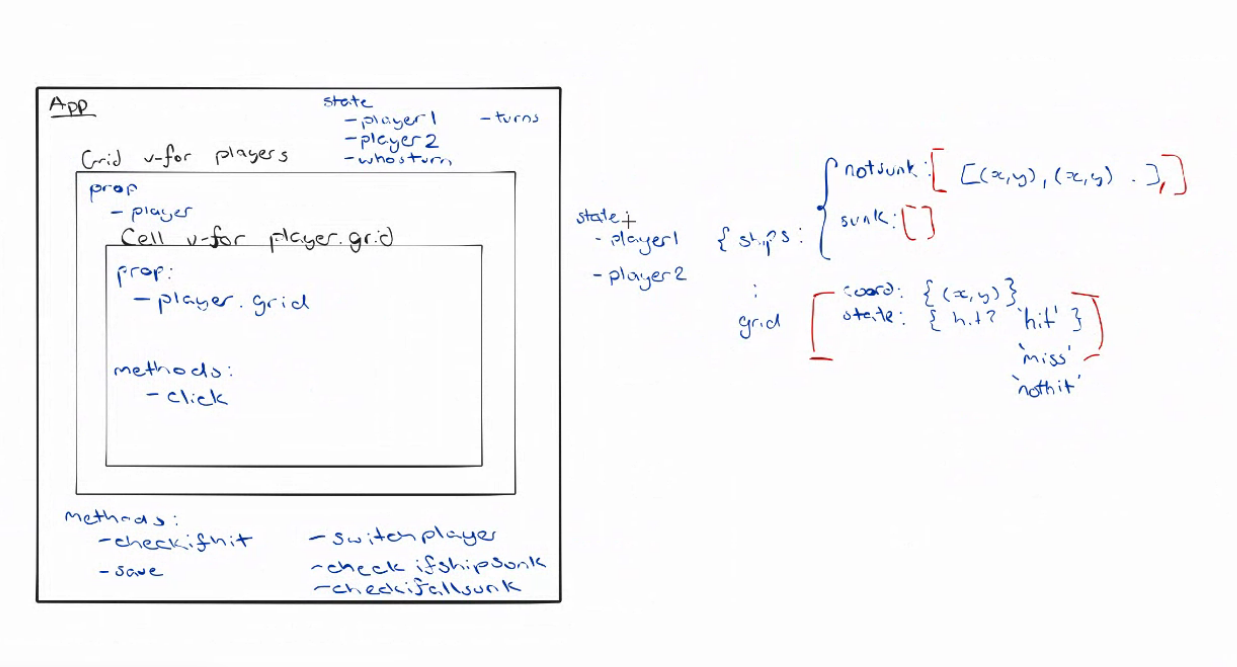 App
state
- player1
- turns
- player2
- whosturn
Grid v-for players
prop
- player
Cell v-for player.grid
prop:
- player.grid
methods:
- click
methods:
- checkifhit
- save
- switchplayer
- check ifshipsunk
- checkifallsunk
state
- player1
- player2
{ ships : {
notsunk : [ [(x,y), (x,y) . ], ]
sunk : [ ]
:
grid [
coord: { (x,y) }
state: { hit? 'hit' } ]
'miss'
'nothit'